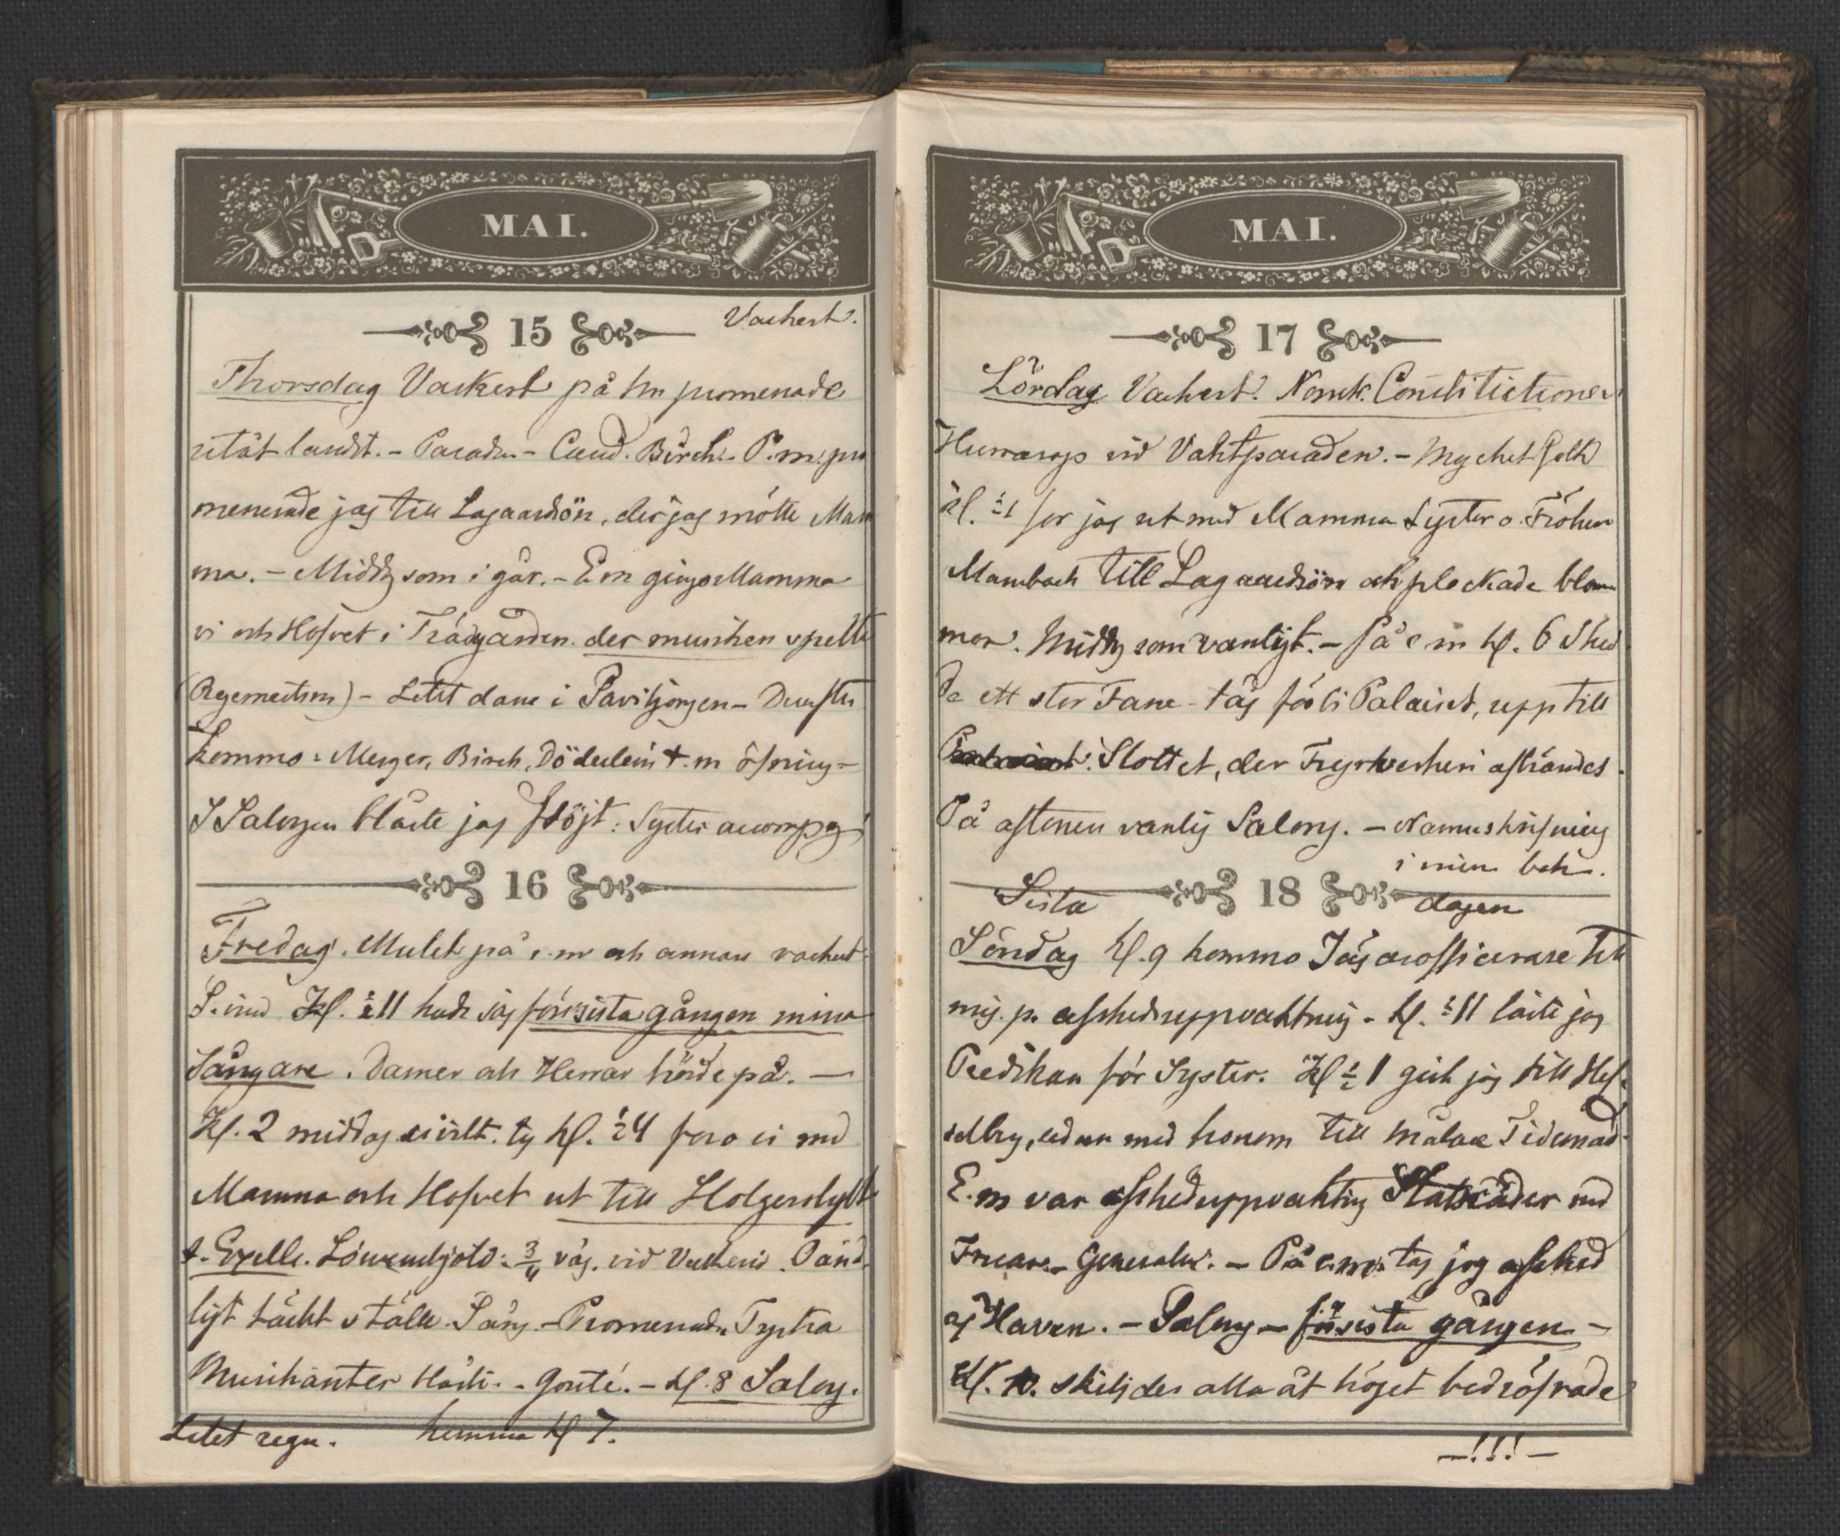 MAI.
15
Vackert.
Thorsdag Vackert på fm promenade
utåt landst. - Paraden - Cand. Birch. - P. m. pro
menerade jag till Lagaardsön, der jag mötte Mam
ma. - Midd. som i går. - E m gingo Mamma
vi och Hofvet i Trädgården der musiken spelte
(Regementsm) - Litet dans i Paviljongen -
kommo: Meyer, Birch, Döderlein + . m öfning -
I Salongen blåste jag flöjt: Syster accompg
16
Fredag. Mulet på e. m och annars vackert.
Kl. ½ 11 hade jag för sista gången mina
Sångare. Damer och Herrar hörde på. -
Kl. 2 middag civilt. ty Kl. ½ 4 foro vi med
Mamma och Hofvet ut till Holgerslyst
t. Excell. Löwenskjold: 3/4 väg. vid
ligt täckt ställe. Sång. - Promenade Tyska
Musikanter - Gouté. - Kl. 8 Salong.
Litet regn. hemma kl 7.
MAI.
17
Lördag Vackert. Norsk. Constitutionen
Hurrarop vid Vaktparaden. - Mycket folk
Kl. ½ 1 for jag ut med Mamma Syster o. Fröken
Mansbach till Lagaardsön och plockade blom
mor. Midd. som vanligt. - På e m kl. 6 sked
de ett stor Fane-tåg förbi Palaiset, upp till
Slottet, der Fyrverkeri afbrändes.
På aftonen vanlig Salong. - Namnskrifning
i min bok.
18
Sista dagen
Söndag Kl. 9 kommo Jägarofficerare till
mig p. afskedsuppvaktning - kl. ½ 11 läste jag
Predikan för Syster. Kl ½ 1 gick jag till Hes
selberg, sedan med honom till målare Tidemand.
E. m var afskedsuppvaktning Statsråder med
Fruar - Generaler. - På e. m. tog jag afsked
af Haven. - Salong - för sista gången -
Kl. 10. skiljdes alla åt högst bedröfvade
- ! ! ! -